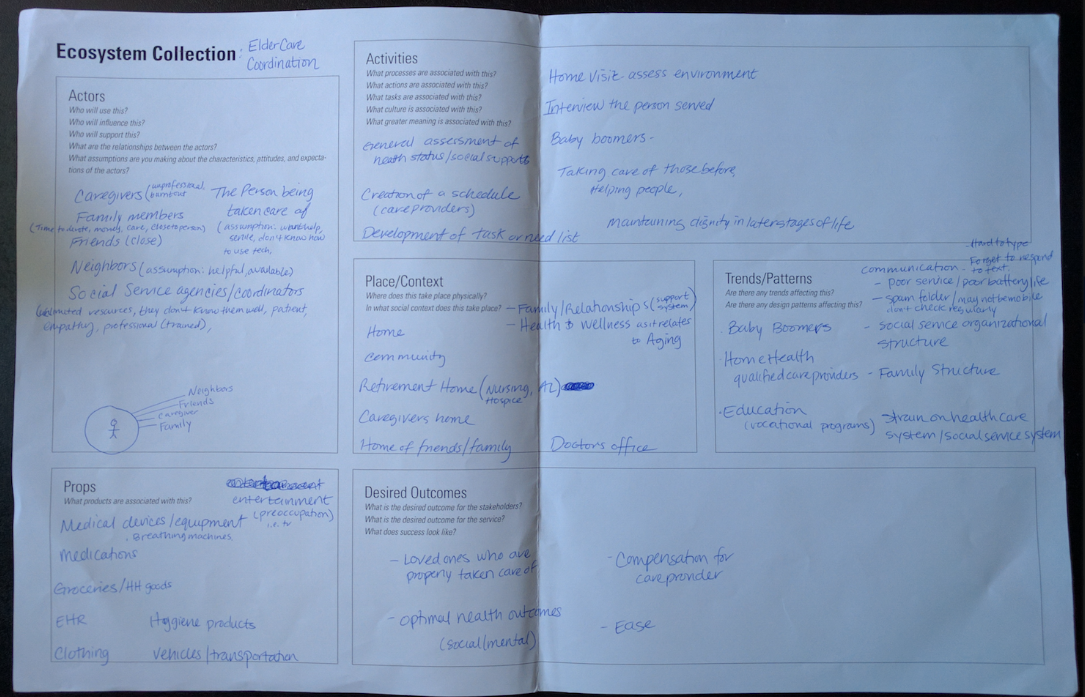 Ecosystem Collection : ElderCare
Coordination
Actors
Who will use this?
Who will influence this?
Who will support this?
What are the relationships between the actors?
What assumptions are you making about the characteristics, attitudes, and expecta-
tions of the actors?
Caregivers (unprofessional,
burntout
Family members
(Time to donate, money, care, close to person)
Friends (close)
The Person being
taken care of
(assumption: want help,
senile, don't know how
to use tech,
Neighbors (assumption: helpful, available)
Social Service agencies/coordinators
(limited resources, they don't know them well, patient,
empathy, professional (trained),
Neighbors
Friends
caregiver
Family
Activities
What processes are associated with this?
What actions are associated with this?
What tasks are associated with this?
What culture is associated with this?
What greater meaning is associated with this?
General assessment of
health status/social supports
Creation of a schedule
(care providers)
Development of task or need list
Home Visit - assess environment
Interview the person served
Baby boomers -
Taking care of those before,
Helping people,
Maintaining dignity in later stages of life
Place/Context
Where does this take place physically?
In what social context does this take place?
- Family/Relationships (support
system)
- Health & Wellness as it relates
to Aging
Home
Community
Retirement Home (Nursing, AL)
Hospice
Caregivers home
Home of friends/family
Doctors office
Trends/Patterns
Are there any trends affecting this?
Are there any design patterns affecting this?
Communication -
Hard to type
Forget to respond
to text.
- poor service/poor battery life
- spam folder/may not be mobile
don't check regularly
Baby Boomers
- social service organizational
structure
Home Health
qualified care providers
- Family Structure
Education
(vocational programs)
strain on health care
system/social service system
Props
What products are associated with this?
entertainment
(preoccupation)
i.e. tv
Medical devices/equipment
. Breathing machines.
Medications
Groceries/HH goods
EHR
Hygiene products
Clothing
Vehicles/transportation
Desired Outcomes
What is the desired outcome for the stakeholders?
What is the desired outcome for the service?
What does success look like?
- Loved ones who are
properly taken care of
- optimal health outcomes
(social/mental)
- Compensation for
care provider
- Ease